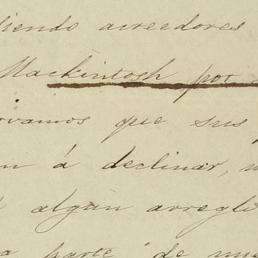 iendo acreedores
Mackintosh por
rvamos que sus
n á declinar,
algun arreglo
parte de